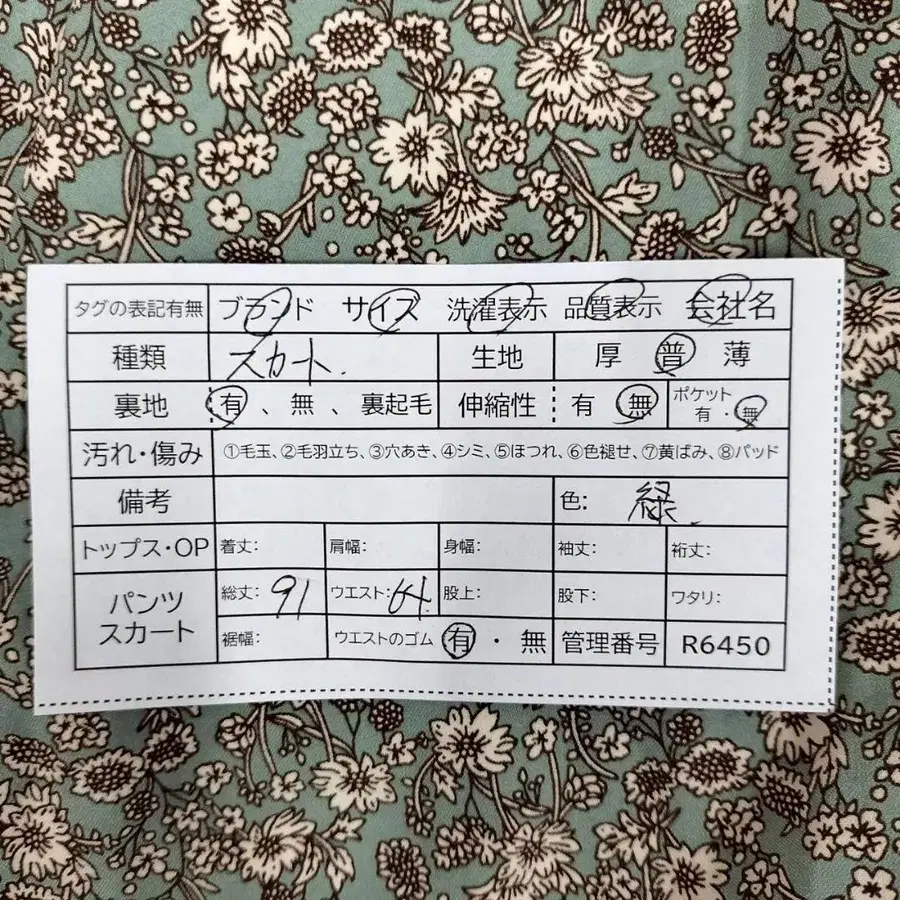 タグの表記有無 ブランド サイズ 洗濯表示 品質表示 会社名
種類 スカート. 生地 厚 普 薄
裏地 有、無、裏起毛 伸縮性 有 無 ポケット 有・無
汚れ・傷み ①毛玉、②毛羽立ち、③穴あき、④シミ、⑤ほつれ、⑥色褪せ、⑦黄ばみ、⑧パッド
備考 色: 緑.
トップス・OP 着丈: 肩幅: 身幅: 袖丈: 裄丈:
パンツ スカート 総丈: 91 ウエスト: 64. 股上: 股下: ワタリ:
裾幅: ウエストのゴム 有・無 管理番号 R6450